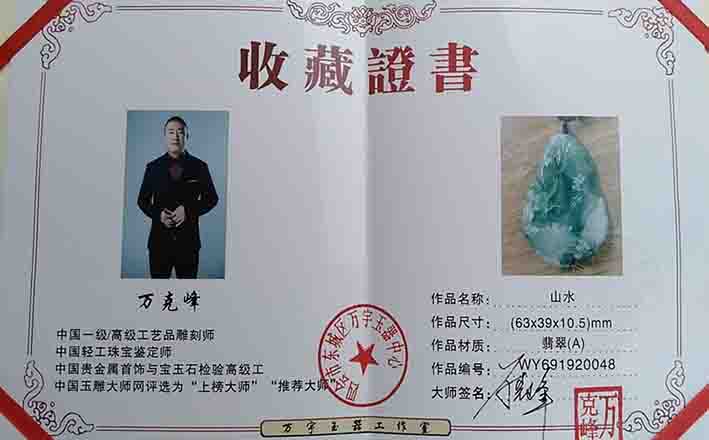 收藏證書
万克峰
中国一级/高级工艺品雕刻师
中国轻工珠宝鉴定师
中国贵金属首饰与宝玉石检验高级工
中国玉雕大师网评选为“上榜大师”“推荐大师”
作品名称: 山水
作品尺寸: (63x39x10.5)mm
作品材质: 翡翠(A)
作品编号: WY691920048
大师签名:
万克峰
万宇玉器工作室